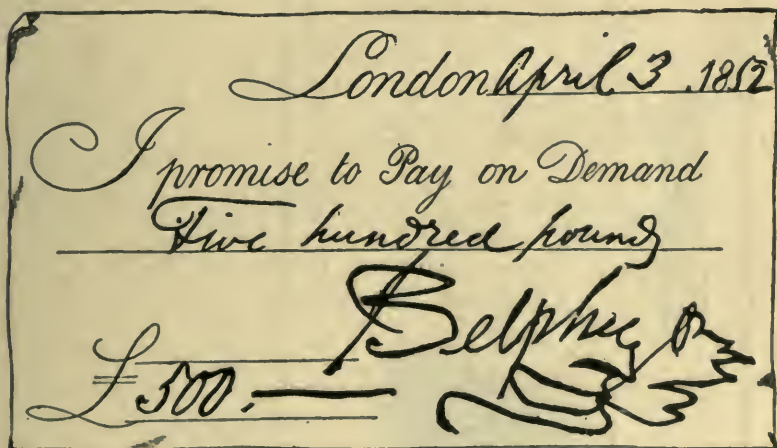 London April 3. 1852
I promise to Pay on Demand
Five hundred pounds
Belphe
£500.